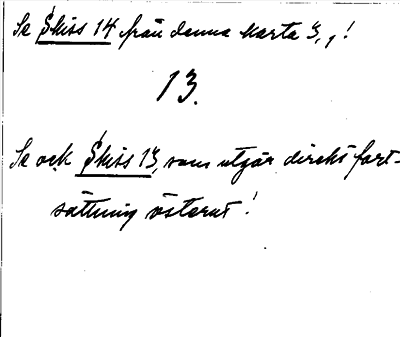 Se Skiss 14 från denna karta 3,1!
13.
Se ock Skiss 13, som utgör direkt fort-
sättning österut!